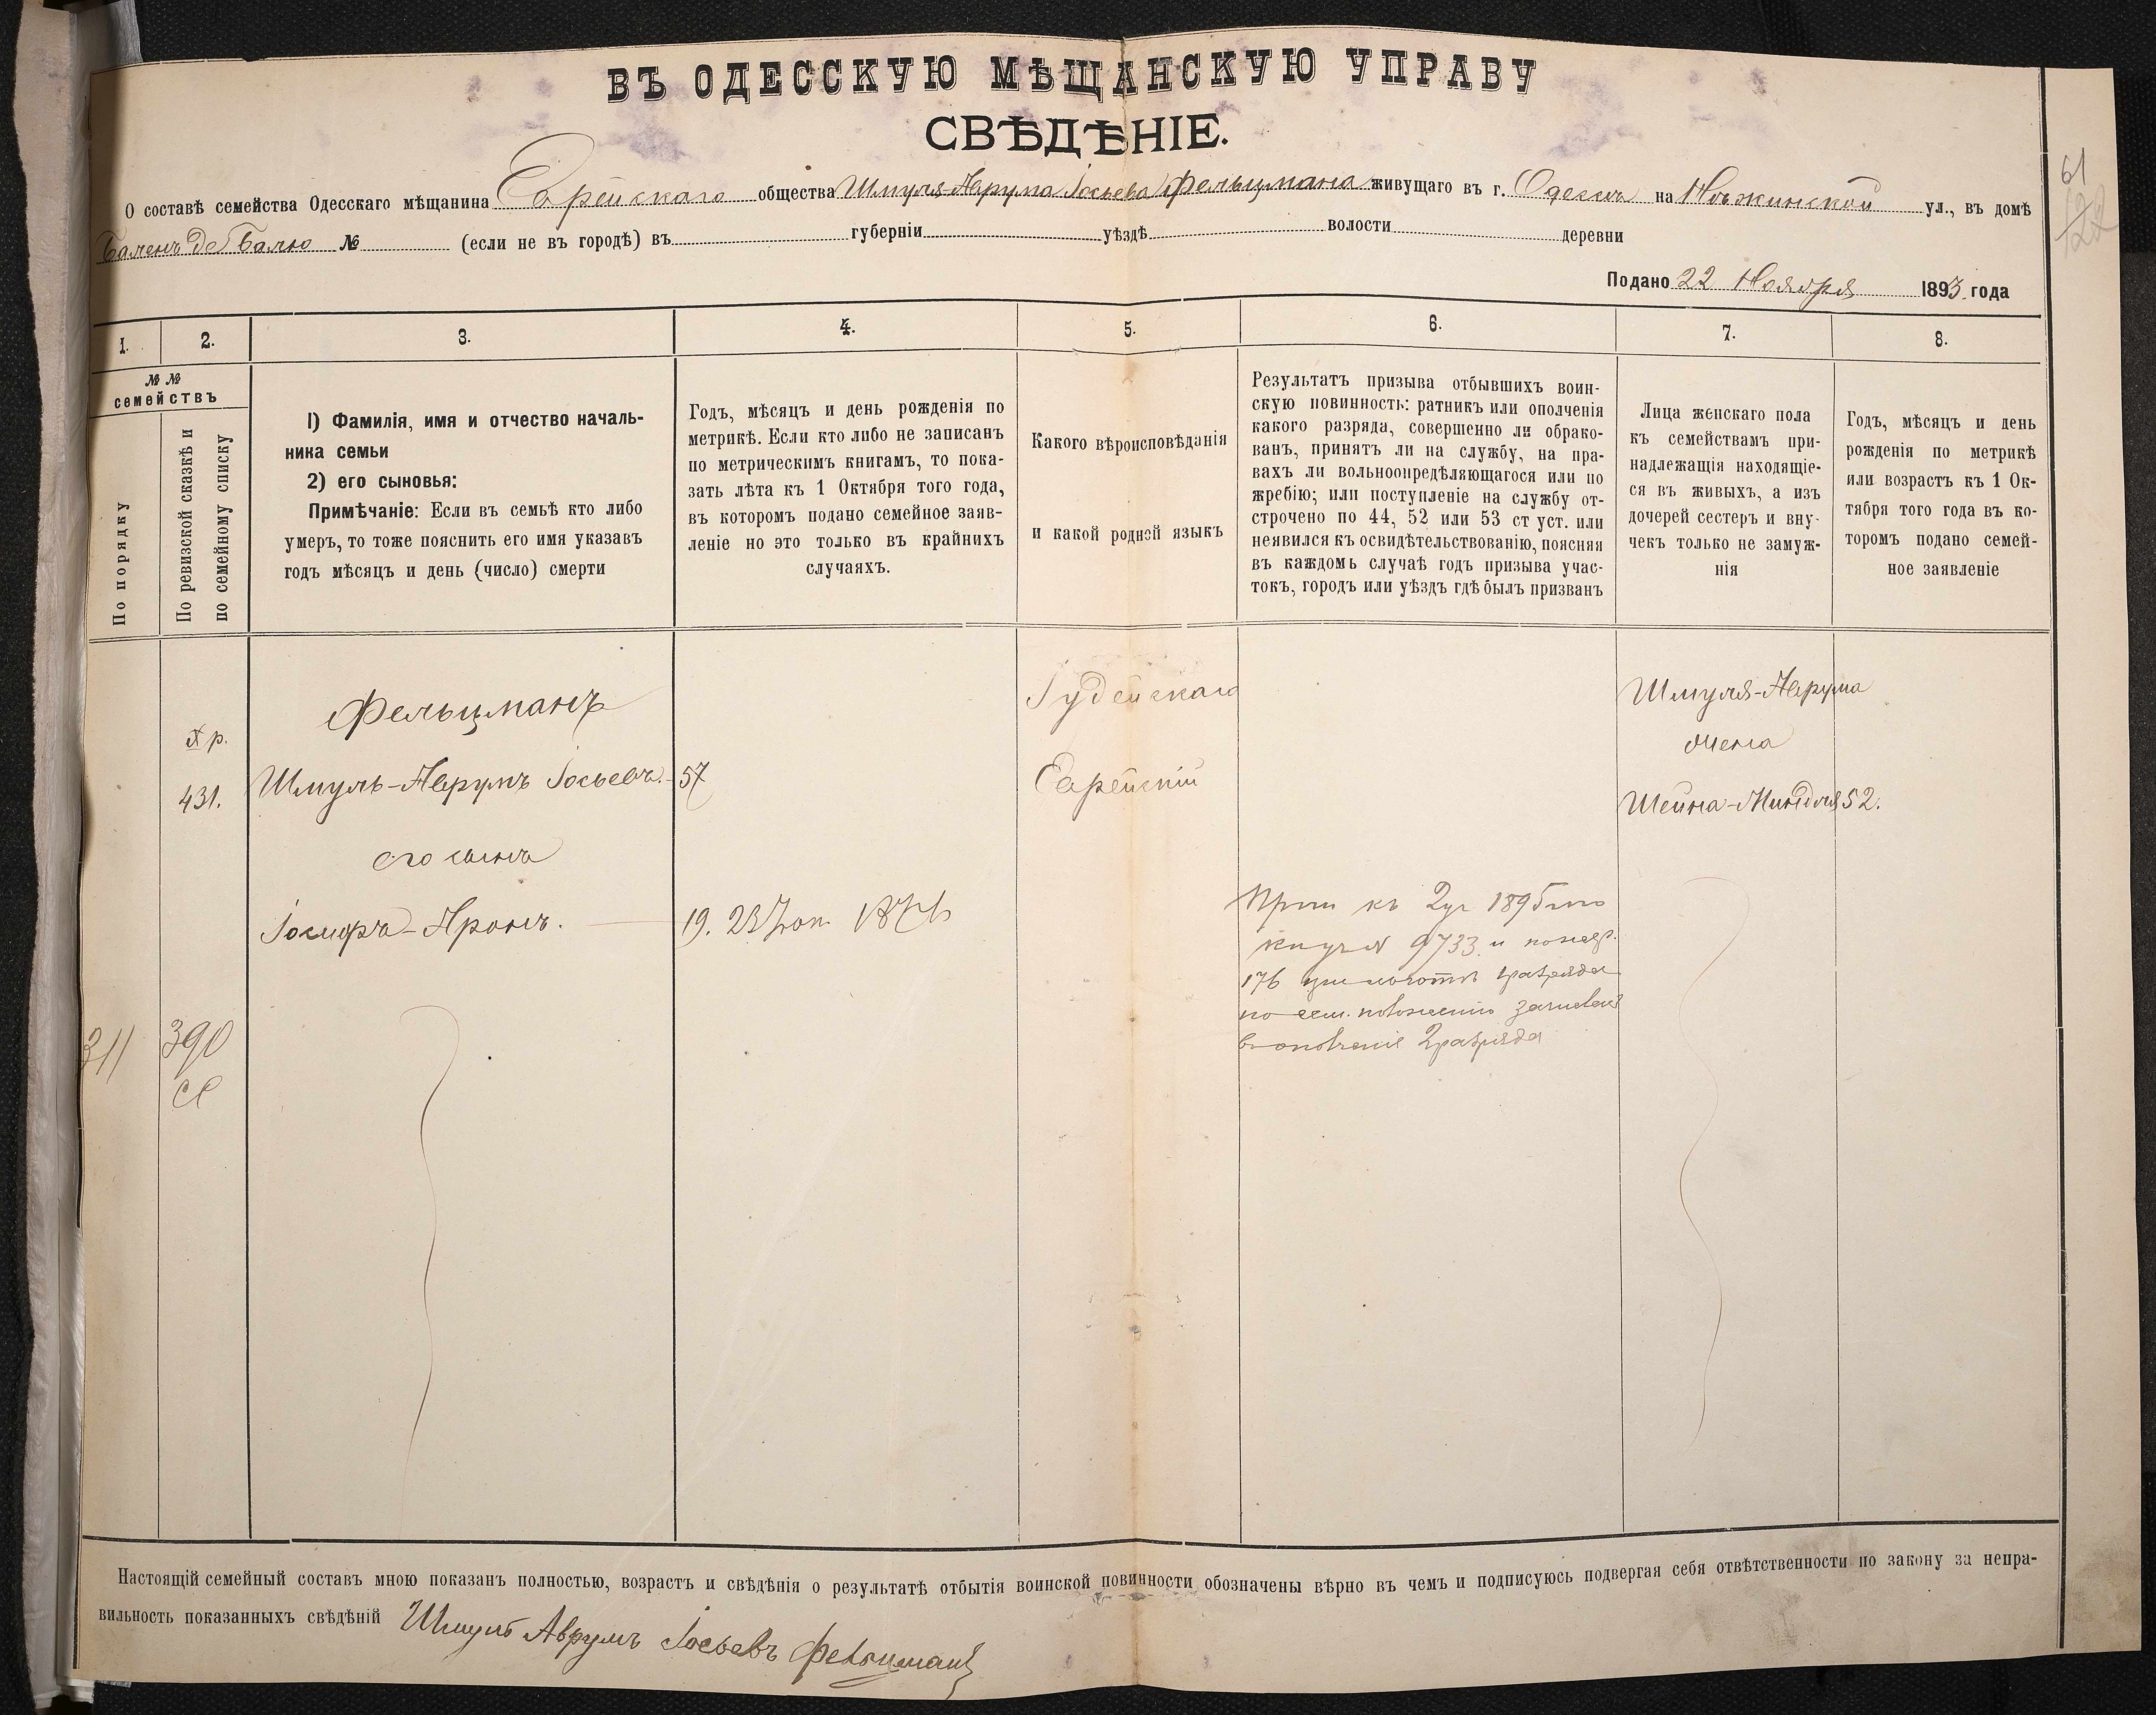 ВЪ ОДЕССКУЮ МѢЩАНСКУЮ УПРАВУ
СВѢДѢНІЕ.
О составѣ семейства Одесскаго мѣщанина Еврейскаго общества Шмуля-Аврума Іосьева Фельцмана живущаго въ г. Одессѣ на Нѣжинской ул., въ домѣ
де Бално № (если не въ городѣ) въ губерніи уѣздѣ волости деревни
Подано 22 Ноября 1893 года
61
122
1. 2. 3. 4. 5. 6. 7. 8.
№ №
семействъ
По порядку
По ревизской сказкѣ и
по семейному списку
1) Фамилія, имя и отчество началь-
ника семьи
2) его сыновья:
Примѣчаніе: Если въ семьѣ кто либо
умеръ, то тоже пояснить его имя указавъ
годъ мѣсяцъ и день (число) смерти
Годъ, мѣсяцъ и день рожденія по
метрикѣ. Если кто либо не записанъ
по метрическимъ книгамъ, то пока-
зать лѣта къ 1 Октября того года,
въ которомъ подано семейное заяв-
леніе но это только въ крайнихъ
случаяхъ.
Какого вѣроисповѣданія
и какой родной языкъ
Результатъ призыва отбывшихъ воин-
скую повинность: ратникъ или ополченія
какого разряда, совершенно ли обрако-
ванъ, принятъ ли на службу, на пра-
вахъ ли вольноопредѣляющагося или по
жребію; или поступленіе на службу от-
строчено по 44, 52 или 53 ст уст. или
неявился къ освидѣтельствованію, поясняя
въ каждомъ случаѣ годъ призыва учас-
токъ, городъ или уѣздъ гдѣ былъ призванъ
Лица женскаго пола
къ семействамъ при-
надлежащія находящіе-
ся въ живыхъ, а изъ
дочерей сестеръ и вну-
чекъ только не замуж-
нія
Годъ, мѣсяцъ и день
рожденія по метрикѣ
или возрастъ къ 1 Ок-
тября того года въ ко-
торомъ подано семей-
ное заявленіе
Фельцманъ
Іудейскаго
Шмуля-Аврума
хр.
жена
431. Шмуль-Аврумъ Іосьевъ. 57
Еврейскій
Шейна-Миндля 52.
его сынъ
Іосифъ-Аронъ. 19. 23
къ 2 уч 1895
9733 и
176 разряда
по сем. положенію зачисленъ
в ополченіе 2 разряда
311 390
Настоящій семейный составъ мною показанъ полностью, возрастъ и свѣдѣнія о результатѣ отбытія воинской повинности обозначены вѣрно въ чемъ и подписуюсь подвергая себя отвѣтственности по закону за непра-
вильность показанныхъ свѣдѣній Шмуль Аврумъ Іосьевъ Фельцманъ